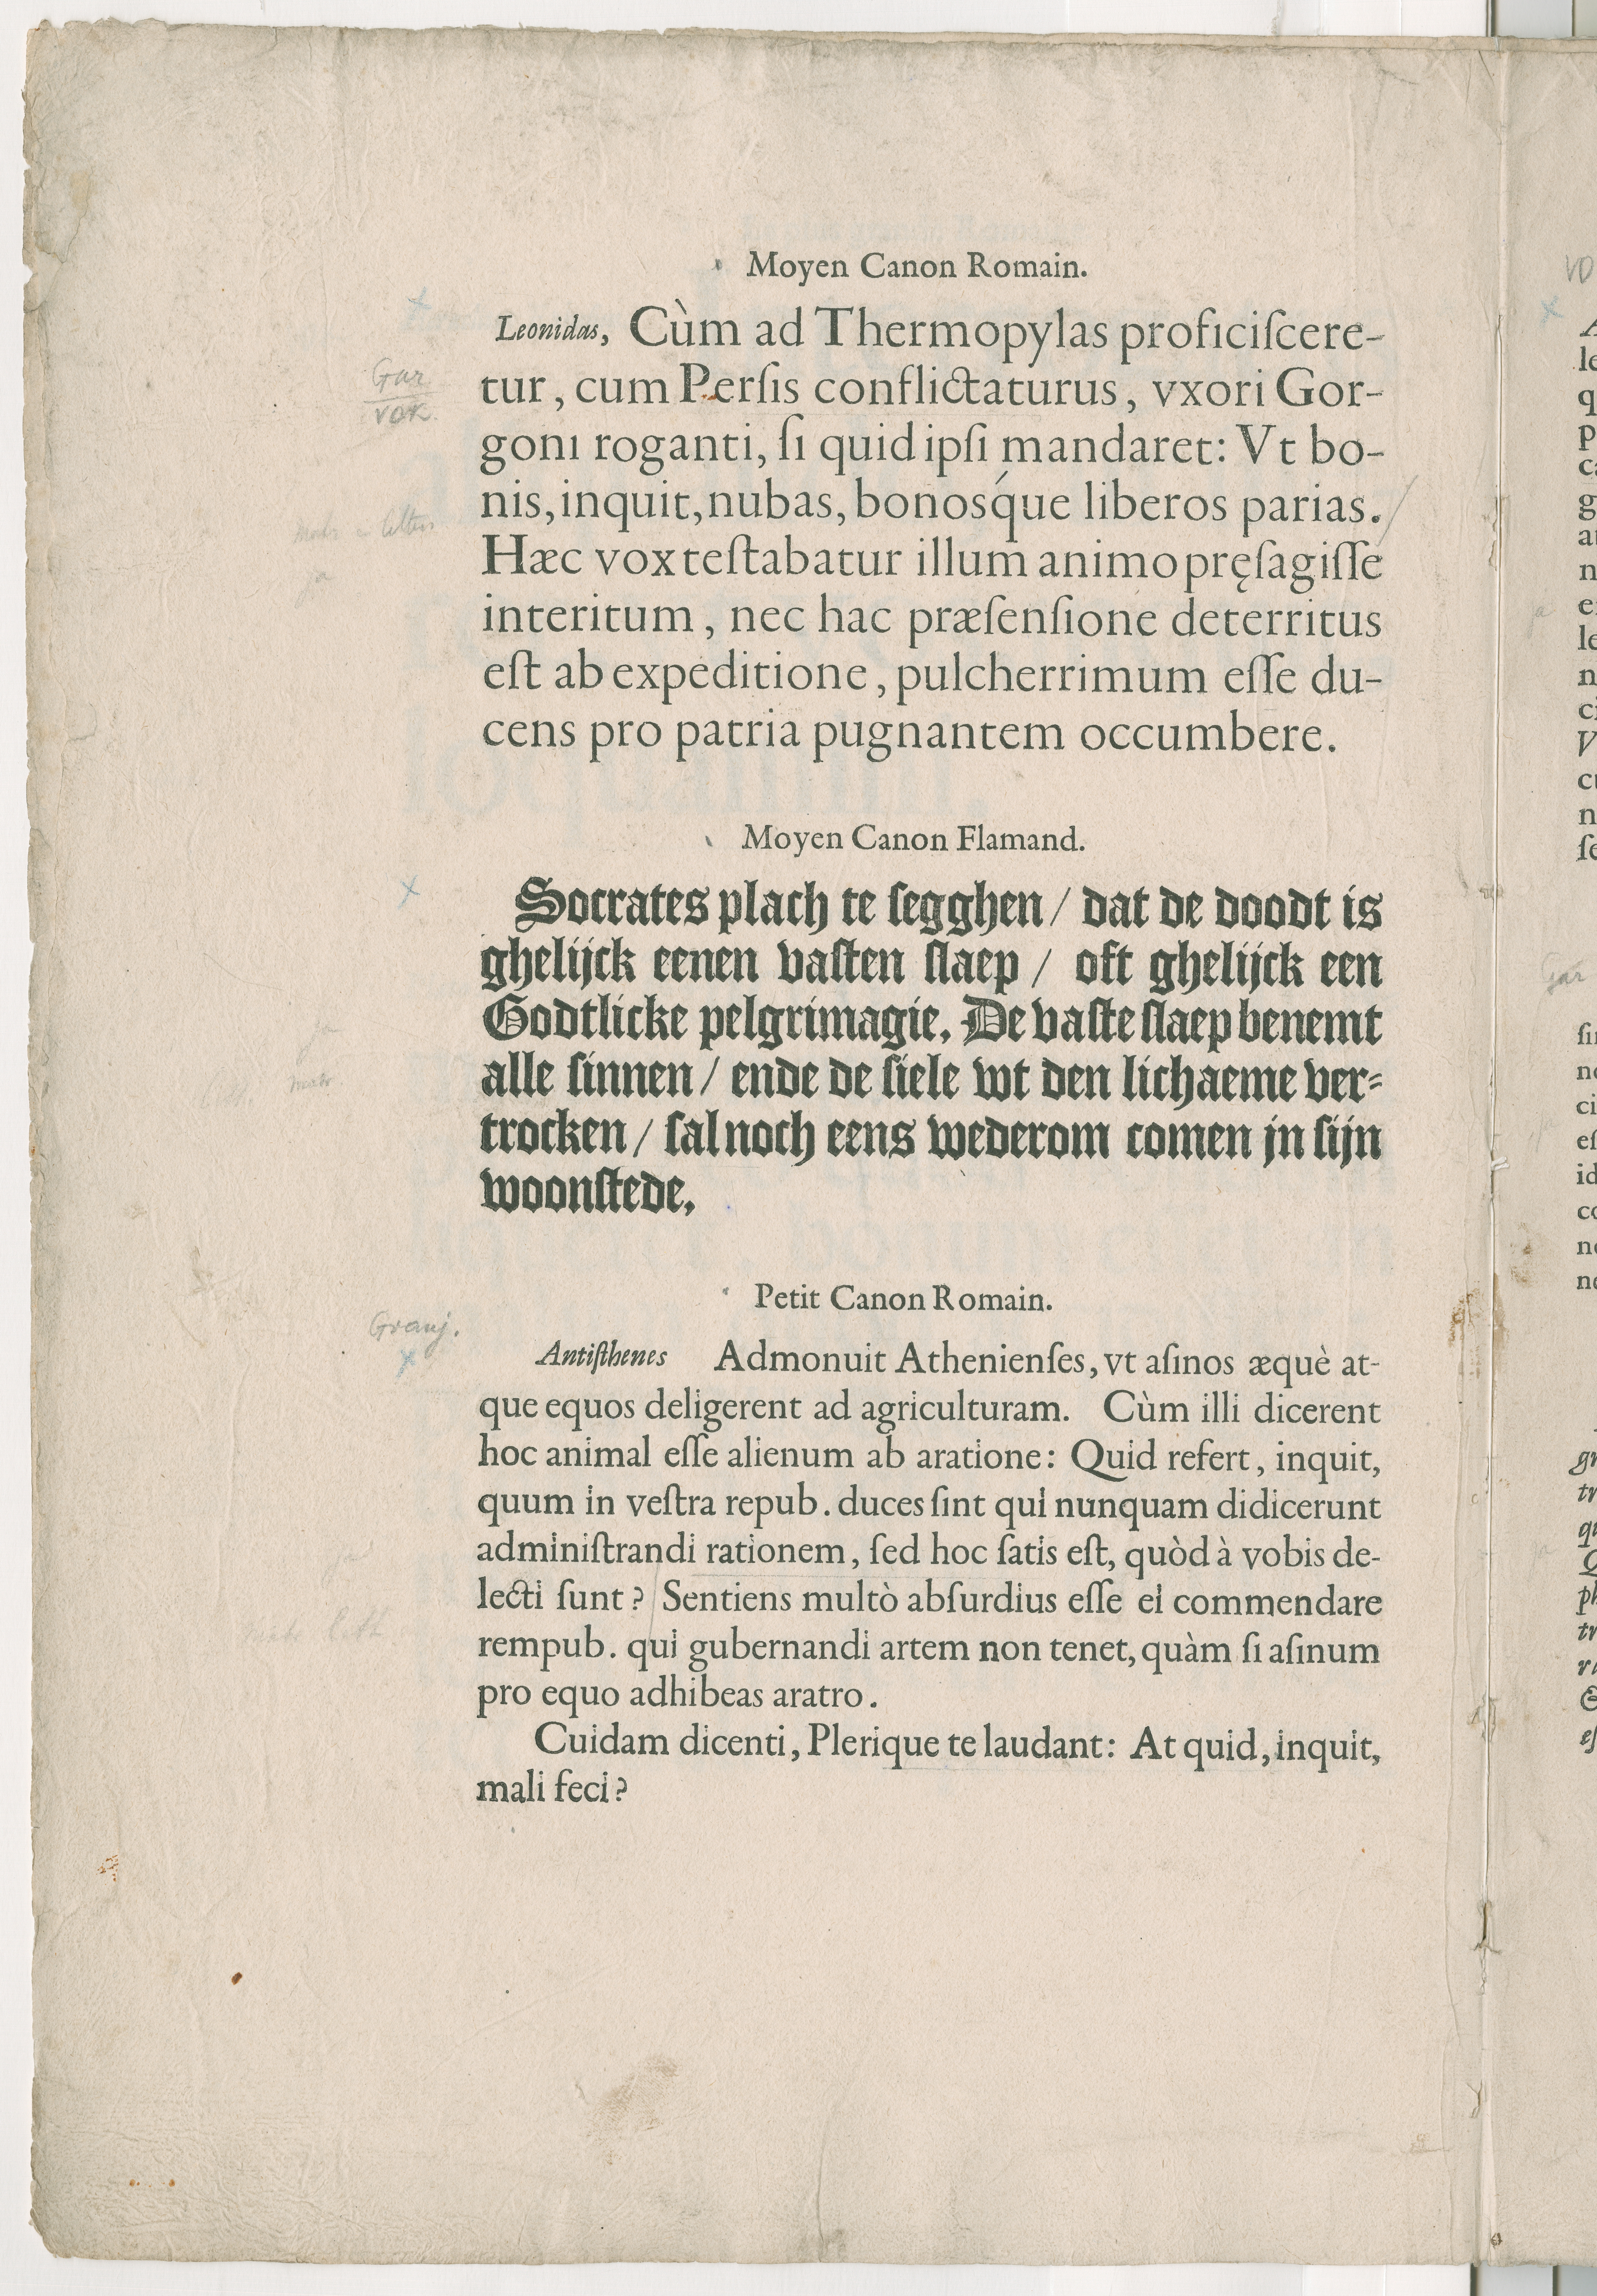 Moyen Canon Romain.
Leonidas, Cùm ad Thermopylas proficiſcere-
tur, cum Perſis conflictaturus, vxori Gor-
goni roganti, ſi quid ipſi mandaret: Vt bo-
nis, inquit, nubas, bonosq́ue liberos parias.
Hæc vox teſtabatur illum animo pręſagiſſe
interitum, nec hac præſenſione deterritus
eſt ab expeditione, pulcherrimum eſſe du-
cens pro patria pugnantem occumbere.
Gar
vok.
Moyen Canon Flamand.
Socrates plach te ſegghen / dat de doodt is
ghelijck eenen vaſten ſlaep / oft ghelijck een
Godtlicke pelgrimagie. De vaſte ſlaep benemt
alle ſinnen / ende de ſiele wt den lichaeme ver-
trocken / ſal noch eens wederom comen in ſijn
woonſtede.
Petit Canon Romain.
Granj.
Antiſthenes Admonuit Athenienſes, vt aſinos æquè at-
que equos deligerent ad agriculturam. Cùm illi dicerent
hoc animal eſſe alienum ab aratione: Quid refert, inquit,
quum in veſtra repub. duces ſint qui nunquam didicerunt
adminiſtrandi rationem, ſed hoc ſatis eſt, quòd à vobis de-
lecti ſunt? Sentiens multò abſurdius eſſe ei commendare
rempub. qui gubernandi artem non tenet, quàm ſi aſinum
pro equo adhibeas aratro.
Cuidam dicenti, Plerique te laudant: At quid, inquit,
mali feci?